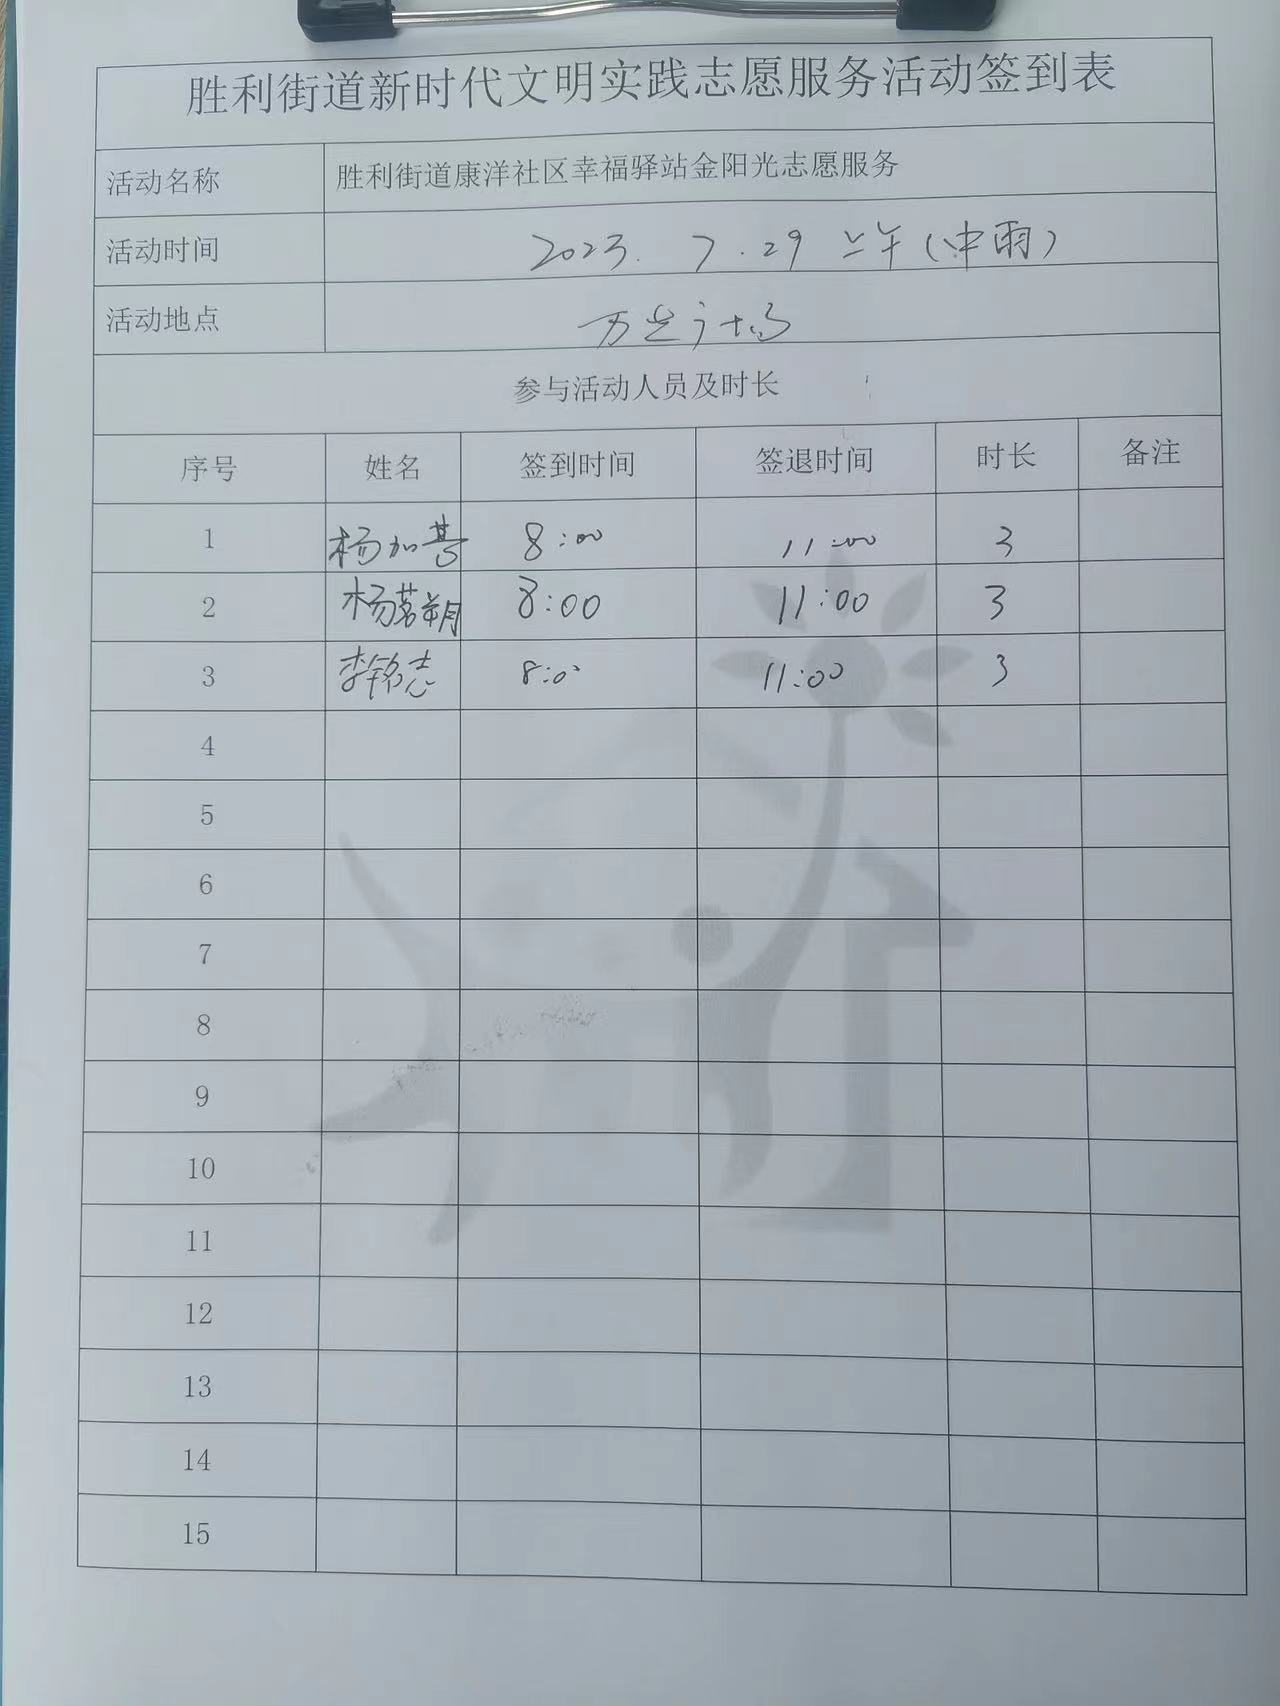 胜利街道新时代文明实践志愿服务活动签到表
活动名称 胜利街道康洋社区幸福驿站金阳光志愿服务
活动时间 2023. 7.29 上午(中雨)
活动地点 万达广场
参与活动人员及时长
序号 姓名 签到时间 签退时间 时长 备注
1 杨加 8:00 11:00 3
2 杨茗朔 8:00 11:00 3
3 李铭志 8:00 11:00 3
4
5
6
7
8
9
10
11
12
13
14
15